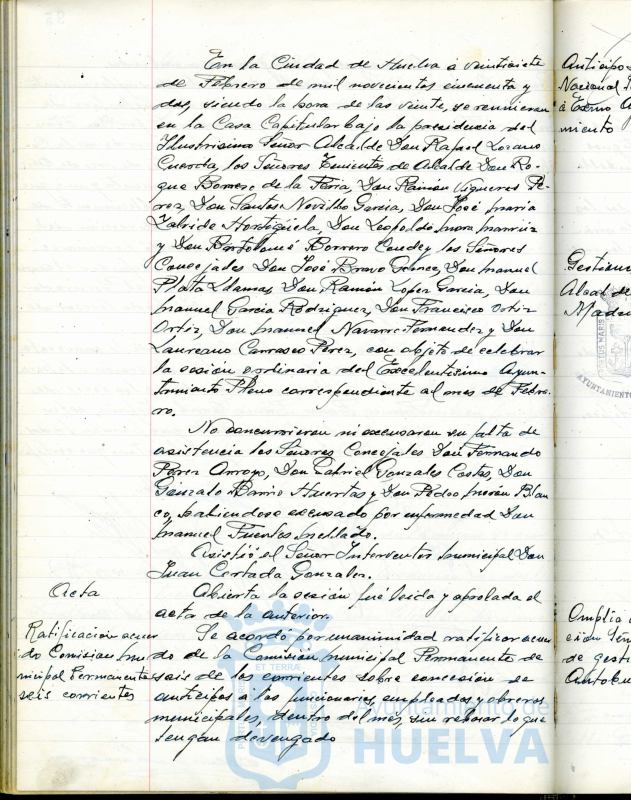 En la Ciudad de Huelva a veintisiete
de Febrero de mil novecientos cincuenta y
dos, siendo la hora de las veinte, se reunieron
en la Casa Capitular bajo la presidencia del
Ilustrisimo Señor Alcalde Don Rafael Lozano
Cuerda, los Señores Tenientes de Alcalde Don Ro-
que Borrero de la Feria, Don Ramón Vigueras Pé-
rez, Don Santos Novillo Garcia, Don José Maria
Hortigüela, Don Leopoldo Mora
y Don Bartolomé Borrero y los Señores
Concejales Don José Bravo Don Manuel
Plata Llamas, Don Ramón Lopez Garcia, Don
Manuel Garcia Rodriguez, Don Francisco Ortiz
Ortiz, Don Manuel Navarro Fernandez y Don
Laureano Carrasco Perez, con objeto de celebrar
la sesión ordinaria del Excelentisimo Ayun-
tamiento Pleno correspondiente al mes de Febre-
ro.
No concurrieron ni excusaron su falta de
asistencia los Señores Concejales Don Fernando
Perez Arroyo, Don Gabriel Gonzalez Don
Gonzalo Barrio Huertas y Don Pedro Morón Blan
co, habiendose excusado por enfermedad Don
Manuel Fuentes Mellado.
Asistió el Señor Interventor Municipal Don
Juan Cortada Gonzalez.
Acta
Abierta la sesión fué leida y aprobada el
acta de la anterior.
Ratificacion acuer
do Comision Mu-
nicipal Permanente
seis corrientes
Se acordó por unanimidad ratificar acuer
do de la Comisión Municipal Permanente de
seis de los corrientes sobre concesión de
anticipos a los funcionarios, empleados y obreros
municipales, dentro del mes, sin rebasar lo que
tengan devengado
Anticipo
Nacional
miento
Gestiones
Alcalde
Amplia
de gesti
Autobu
ET TERRA
Ayuntamiento de
HUELVA
AYUNTAMIENTO